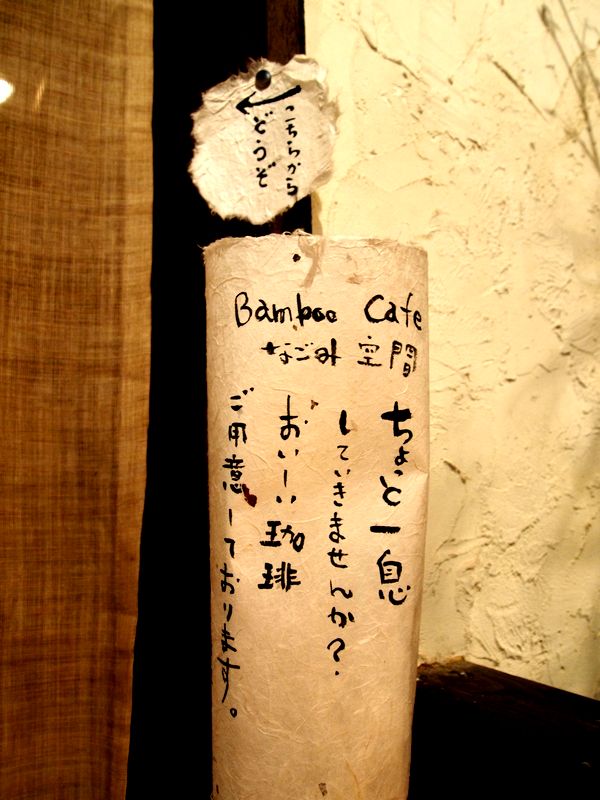 こちらから
どうぞ
Bamboo Cafe
なごみ空間
ちょっと一息
していきませんか?
おいしい珈琲
ご用意しております。